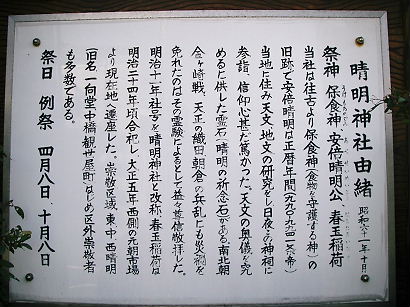 晴明神社由緒 昭和六十一年十月
祭神 保食神 安倍晴明公 春玉稲荷
当社は往古より保食神(食物を守護する神)の
旧跡で安倍晴明は正暦年間(九九〇〜九九四)(一条帝)
当地に住み天文、地文の研究をし日夜この神祠に
参詣、信仰心甚だ篤かった。天文の奥儀を究
めるに供した霊石「晴明の祈念石」がある。南北朝
金ヶ崎戦、天正の織田朝倉の兵乱にも災禍を
免れたのはその霊験によるとして益々尊信敬拝した。
明治十一年社号を晴明神社と改称、春玉稲荷は
明治二十四年頃合祀し、大正五年西側の元朝市場
より現在地へ遷座した。崇敬区域、東、中、西晴明
(旧名 一向堂、中橋、観世屋町)はじめ区外崇敬者
も多数である。
祭日 例祭 四月八日、十月八日